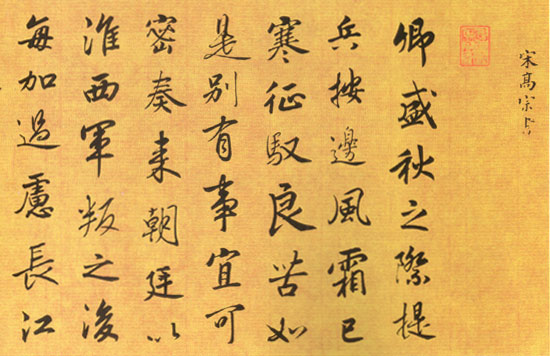 宋高宗書
卿盛秋之際提
兵按邊風霜已
寒征馭良苦如
是别有事宜可
密奏来朝廷以
淮西軍叛之後
每加過慮長江